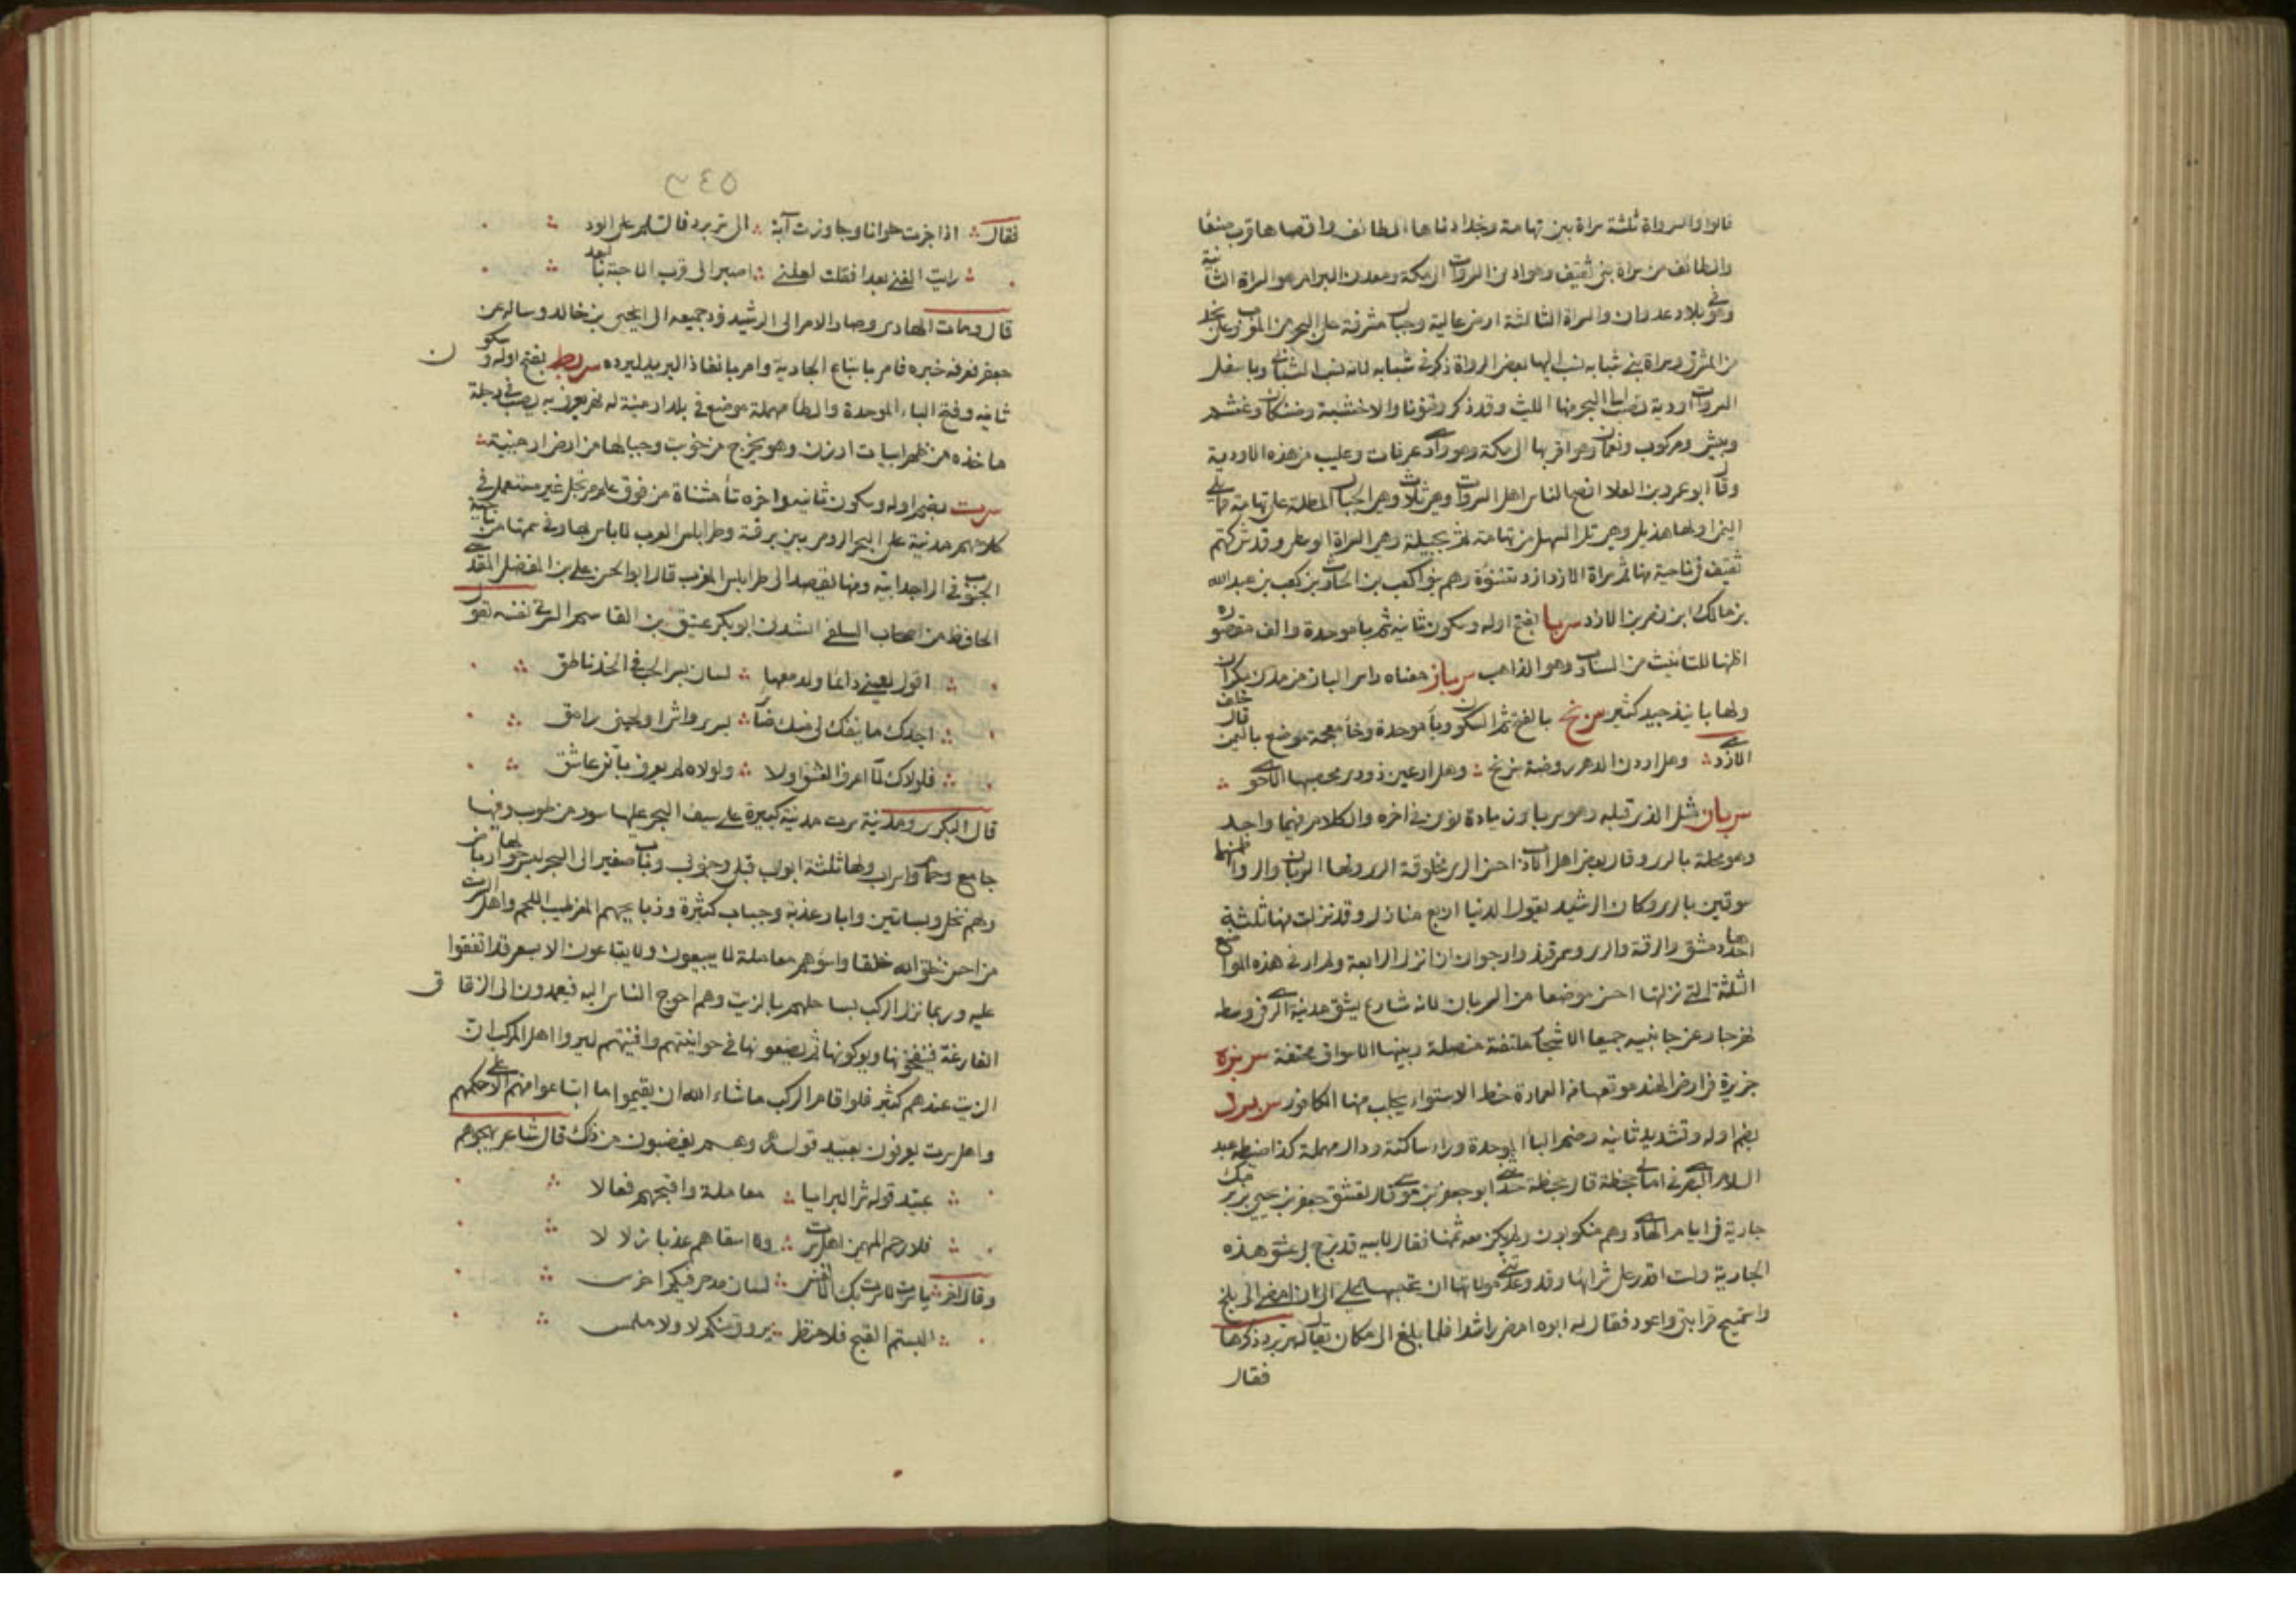 قالوا والسرواة ثلثة سراة بين تهامة ونجد ادناها الطائف واقصاها قرب صنعا
والطائف من سراة بني ثقيف وهو ادنى السروات الى مكة ومعدن البرام هو السراة الثانية
وهو في بلاد عدوان والسراة الثالثة ارض عالية وجبال مشرفة على البحر من المغرب وعلى نجد
من المشرق وسراة بني شبابه نسب اليها بعض الرواة ذكر في شبابه لانه نسب الشبابي وباسفل
السروات اودية تصب الى البحر منها الليث وقد ذكر وقنونا والاخشبة وضنكان وعشم
وبيش ومركوب ونعمان وهو اقربها الى مكة وهو وادي عرفات وعليب من هذه الاودية
وقال ابو عمرو بن العلا افصح الناس اهل السروات وهي ثلاث وهي الجبال المطلة على تهامة مما يلي
اليمن اولها هذيل وهي تلي السهل من تهامة ثم بجيلة وهي السراة الوسطى وقد شركتهم
ثقيف في ناحية منها ثم سراة الازد ازد شنؤة وهم بنو كعب بن الحارث بن كعب بن عبد الله
بن مالك ابن نصر بن الازد سربا بفتح اوله وسكون ثانيه ثم با موحدة والف مقصوره
اظنها للتأنيث من السارب وهو الذاهب سرباز معناه راس الباز من مدن مكران
ولها بانيذ جيد كثير سربخ بالفتح ثم السكون وبا موحدة وخا معجمة موضع باليمن قال خلف
الازدي وهل اردن الدهر روضة سربخ وهل ارعين ذودي محصبها الاحوي
سربان مثل الذي قبله وهو سربا بزيادة نون في اخره والكلام فيهما واحد
وهو محلة بالري وقال بعض اهل الاداب احسن الارض مخلوقة الري ولها السربان والسر واظنهما
سوقين بالري وكان الرشيد يقول الدنيا اربع منازل وقد نزلت منها ثلثة
احدها دمشق والرقة والري وسمرقند وارجو ان انزل الرابعة ولم ار في هذه المواضع
الثلثة التي نزلتها احسن موضعا من السربان لانه شارع يشق مدينة الري في وسطه
نهر جار عن جانبيه جميعا الاشجار ملتفة متصلة وبينها الاسواق محتفة سربزه
جزيرة في ارض الهند موقعها من العمارة خط الاستواء يجلب منها الكافور سربرد
بضم اوله وتشديد ثانيه وضم الباء الموحدة وراء ساكنة ودال مهملة كذا ضبطه عبد
السلام البصري في امالي جحظة قال جحظة حدثني ابو جعفر بن موسى قال تعشق جعفر بن يحيي بن برمك
جارية في ايام الهادي وهم منكوبون ولم يكن معه ثمنها فقال لابيه قد برح بي عشق هذه
الجارية ولست اقدر على شرائها وقد وعدتني مولاتها ان تحبسها علي الى ان امضي الى بلخ
واستميح قرابتي واعود فقال له ابوه امض راشدا فلما بلغ الى مكان يقال له سربرد ذكرها
فقال
٣٤٥
فقال اذا جزت حلوانا وجاوزت آبة الى سربرد فالسلم على الود
رايت الغنى بعدا فقلت لعلني اصير الى قرب الاحبة بالبعد
قال ومات الهادي وصار الامر الى الرشيد فرد جميعه الى يحيى بن خالد وساله عن
جعفر فعرفه خبره فامر بابتياع الجارية وامر بانفاذ البريد ليرده سربط بفتح اوله وسكون
ثانيه وفتح الباء الموحدة والطا مهملة موضع في بلاد ارمينية له نهر يعرف به يصب في دجلة
ماخذه من ظهر ابيات ارزن وهو يخرج من خويت وجبالها من ارض ارمينية
سرت بضم اوله وسكون ثانيه واخره تا مثناة من فوق علم مرتجل غير مستعمل في
كلامهم مدينة على البحر الرومي بين برقة وطرابلس الغرب لاباس بها وفي سمتها من ناحية
الجنوب في البر اجدابيه ومنها يقصد الى طرابلس الغرب قال ابو الحسن علي بن المفضل المقدسي
الحافظ من اصحاب السلفي انشدني ابو بكر عتيق بن القاسم السرتي لنفسه يقول
اقول لعيني دائما ولدمعها لسان بسر الحب في الخد ناطق
اجدك ما ينفك لي منك ضائر بسر واشرا ولحيني رامق
فلولاك لما اعرف العشق اولا ولولاه لم يعرف باني عاشق
قال البكري ومدينة سرت مدينة كبيرة على سيف البحر عليها سور من طوب وبها
جامع وحمام واسواق ولها ثلثة ابواب قبلي وجنوبي وباب صغير الى البحر ليس حولها ارباض
ولهم نخل وبساتين وابار عذبة وجباب كثيرة وذبايحهم المعز طيب اللحم واهل سرت
من اخس خلق الله خلقا واسوءهم معاملة لا يبيعون ولا يبتاعون الا بسعر قد اتفقوا
عليه وربما نزل المركب بساحلهم بالزيت وهم احوج الناس اليه فيعمدون الى الزقاق
الفارغة فينفخونها ويوكونها ثم يضعونها في حوانيتهم وافنيتهم ليروا اهل المركب ان
الزيت عندهم كثير فلو اقام المركب ما شاء الله ان يقيموا ما ابتاعوا منهم الا على حكمهم
واهل سرت يعرفون بعبيد قرله وهم يغضبون من ذلك قال شاعر يهجوهم
عبيد قرله شر البرايا معاملة واقبحهم فعالا
فلا رحم المهيمن اهل سرت ولا اسقاهم عذبا زلالا
وقال اخر يا سرت لا سرت بك الانفس لسان مدحي فيكم اخرس
البستم القبح فلا منظر يروق منكم لا ولا ملبس